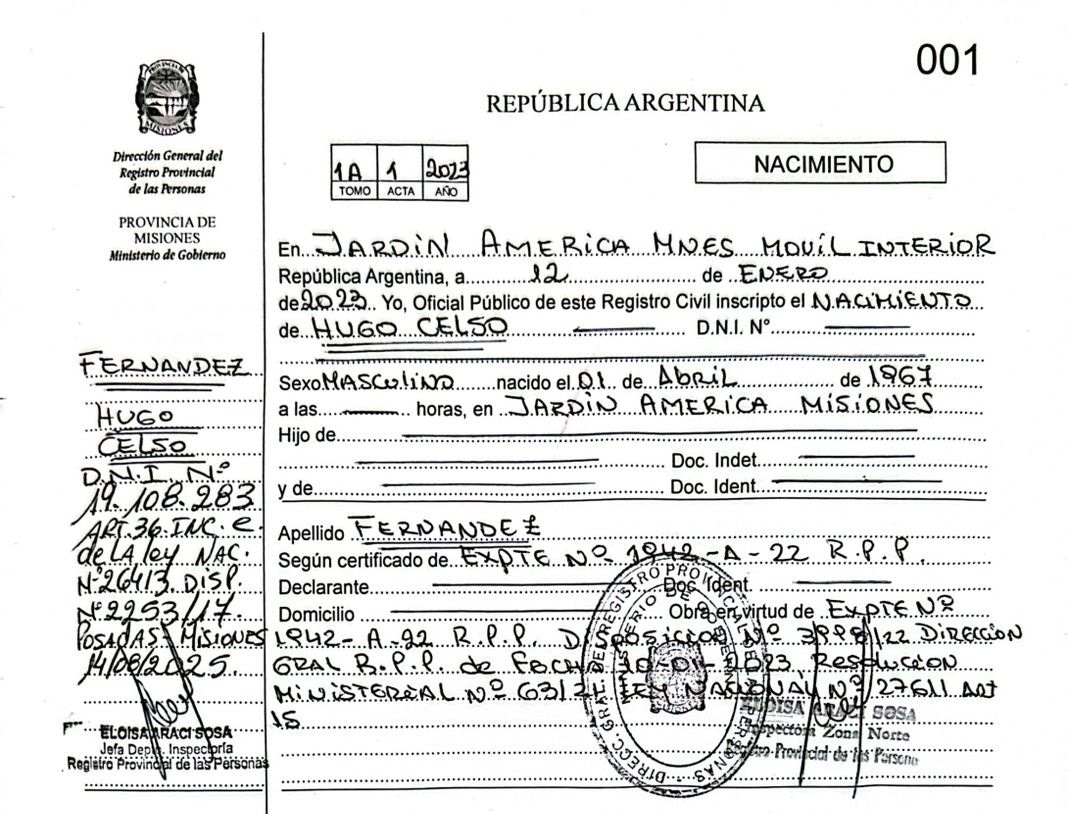 001
REPÚBLICA ARGENTINA
PROVINCIA DE
MISIONES
Dirección General del
Registro Provincial
de las Personas
PROVINCIA DE
MISIONES
Ministerio de Gobierno
1A 1 2023
TOMO ACTA AÑO
NACIMIENTO
En JARDIN AMERICA MNES MOVIL INTERIOR
República Argentina, a 12 de ENERO
de 2023 Yo, Oficial Público de este Registro Civil inscripto el NACIMIENTO
de HUGO CELSO D.N.I. N°
Sexo MASCULINO nacido el 01 de Abril de 1967
a las horas, en JARDIN AMERICA MISIONES
Hijo de
Doc. Indet.
y de Doc. Ident.
Apellido FERNANDEZ
Según certificado de EXPTE Nº 1942-A-22 R.P.P.
Declarante Doc. Ident
Domicilio Obra en virtud de EXPTE Nº
1942-A-22 R.P.P. DISPOSICION Nº /22 DIRECCION
GRAL R.P.P. de FECHA 2023 Resolucion
MINISTERIAL Nº 63/ NACIONAL Nº 27611 Art
15
FERNANDEZ
HUGO
CELSO
D.N.I Nº
19.108.283
ART.36.INC.e.
de LA ley NAC.
Nº26413. DISP.
Nº2253/17.
POSADAS MISIONES
14/08/2025.
ELOISA ARACI SOSA
Jefa Depto. Inspectoría
Registro Provincial de las Personas
DIRECC. GRAL. DEL REGISTRO PROVINCIAL DE LAS PERSONAS
MINISTERIO DE GOBIERNO
ELOISA ARACI SOSA
Inspectora Zona Norte
Registro Provincial de las Personas